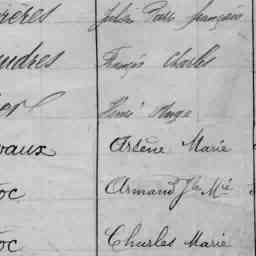 ières Julien Paul françois
udres François Charles
er Henri Ange
vaux Arsène Marie
oc Armand Jh Mie
oc Charles Marie